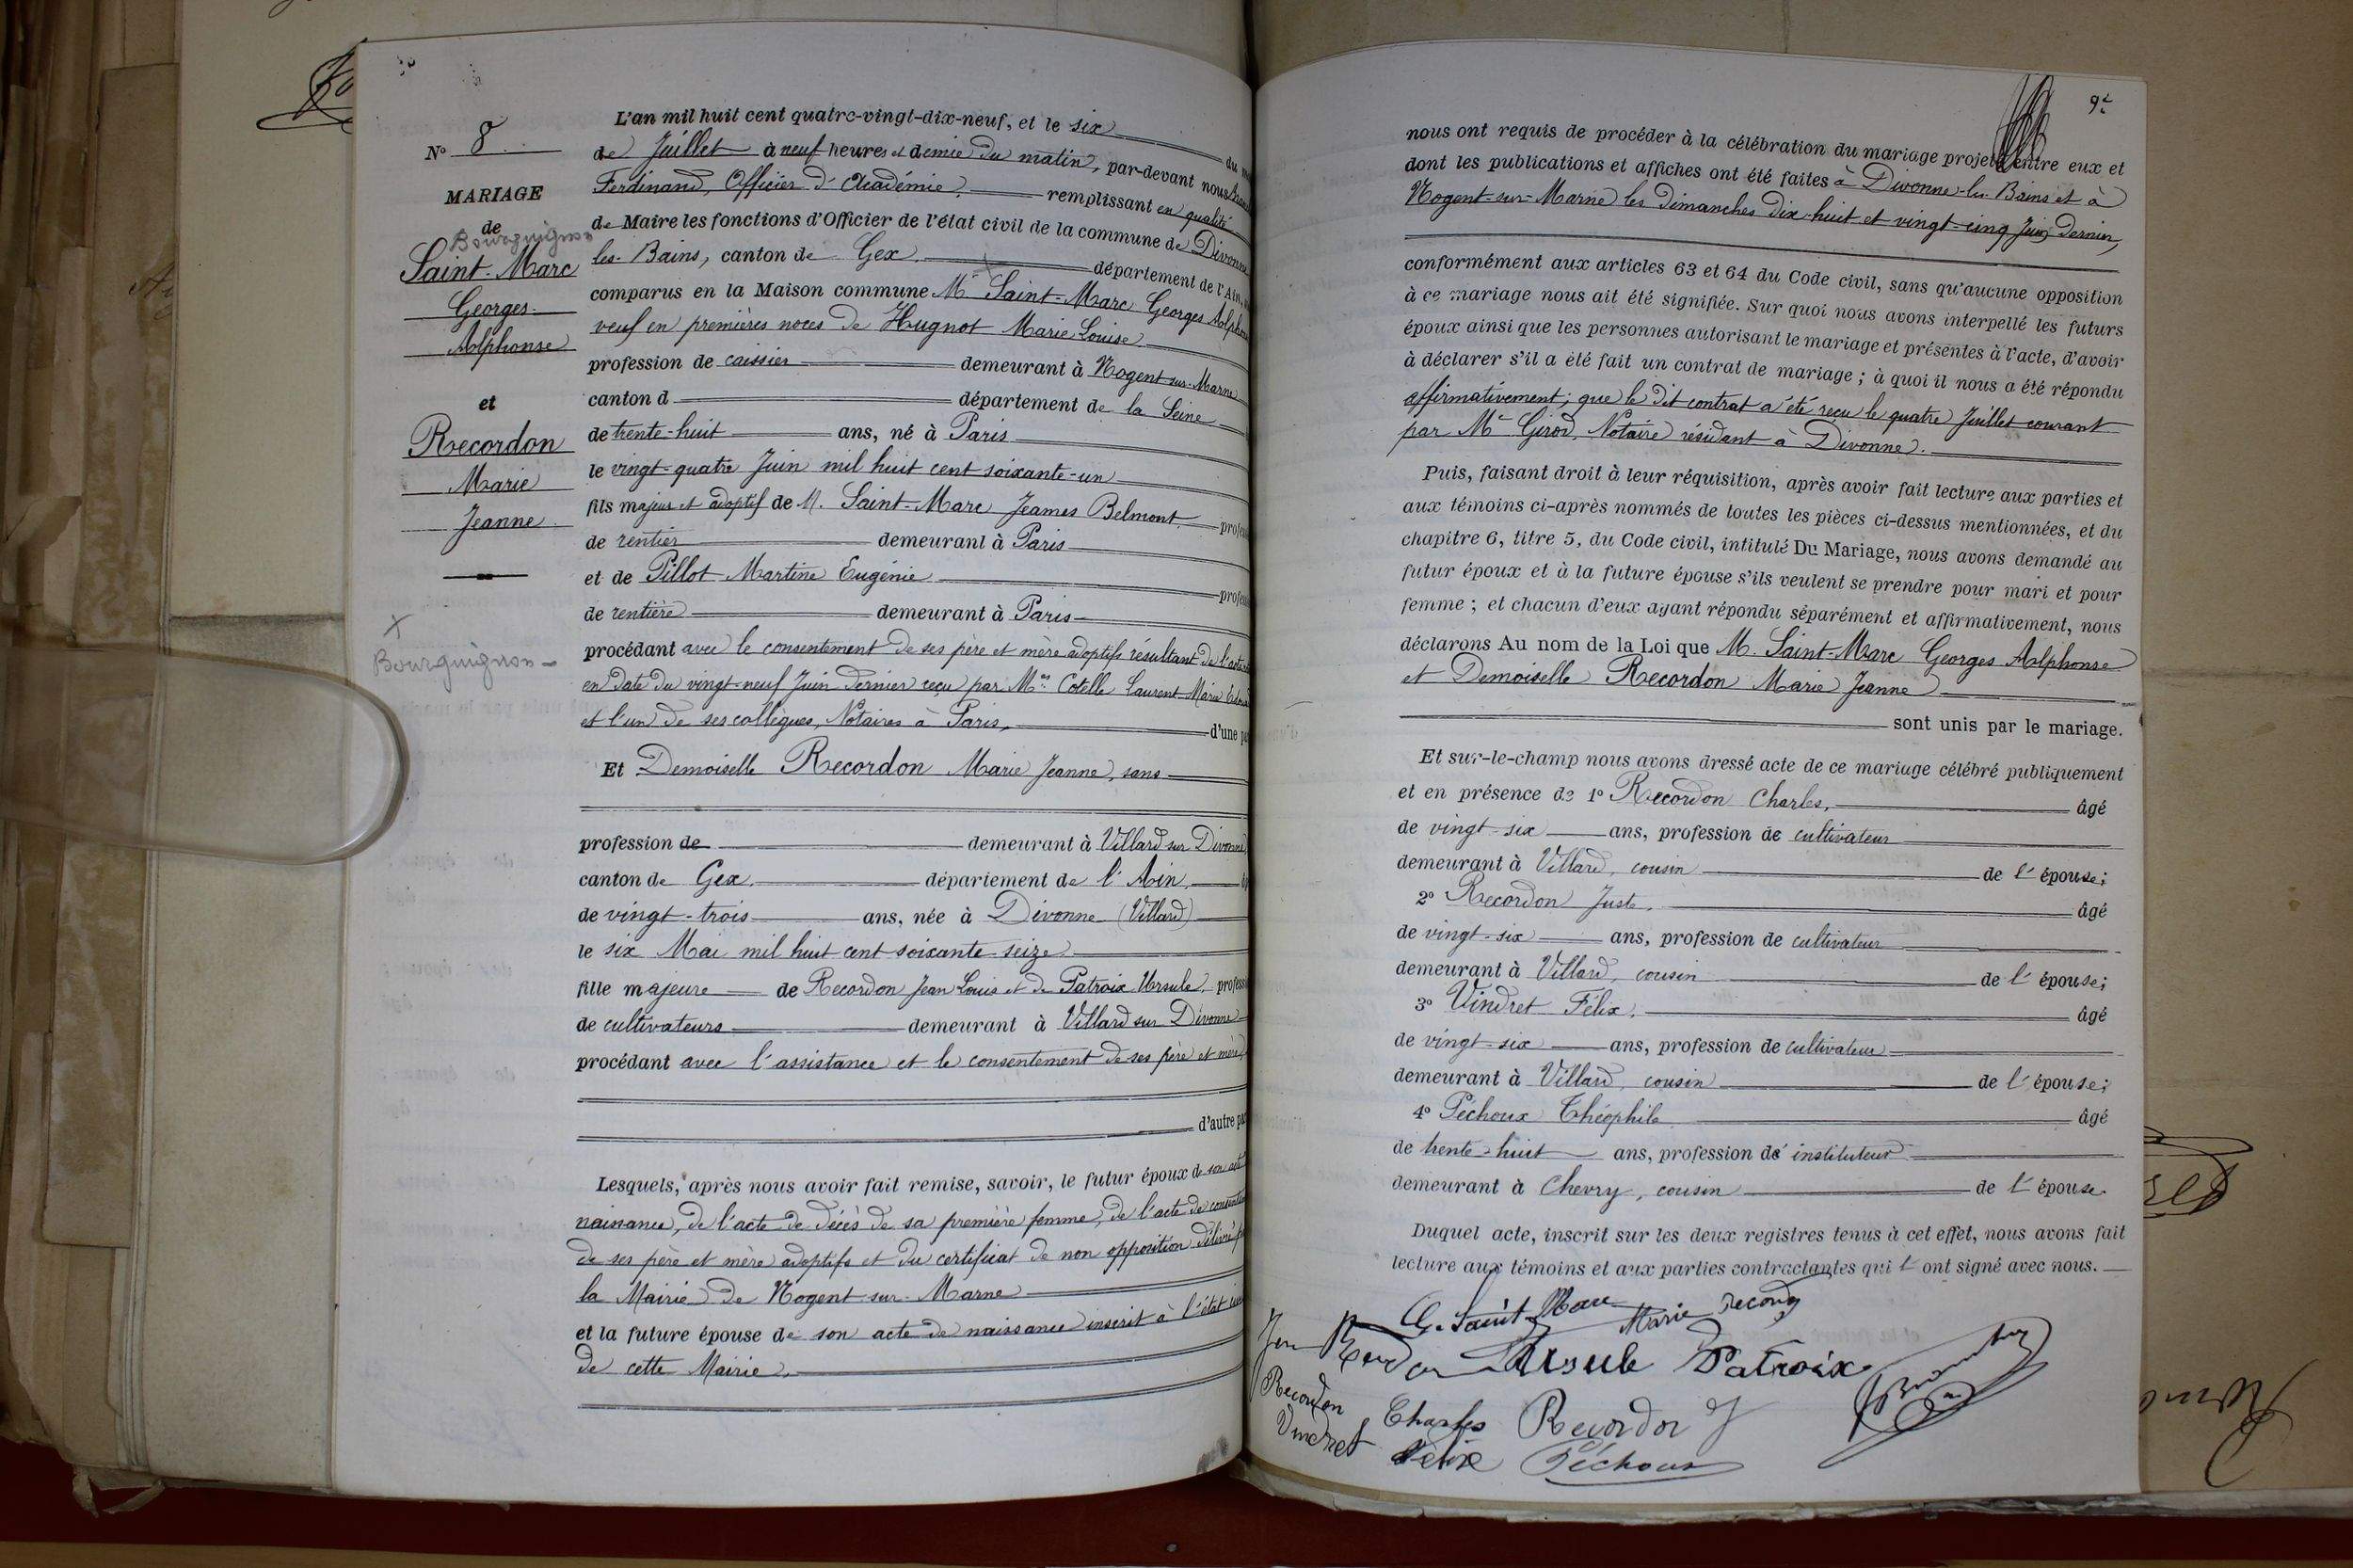 N° 8
MARIAGE
de
Bourguignon
Saint-Marc
Georges
Alphonse
et
Recordon
Marie
Jeanne
Bourguignon
L'an mil huit cent quatre-vingt-dix-neuf, et le six du
de Juillet à neuf heures et demie du matin, par-devant nous
Ferdinand, Officier d'Académie, remplissant en qualité
de Maire les fonctions d'Officier de l'état civil de la commune de Divonne
les-Bains, canton de Gex département de l'Ain,
comparus en la Maison commune Mr Saint-Marc Georges Alphonse
veuf en premières noces de Hugnot Marie Louise
profession de caissier demeurant à Nogent-sur-Marne
canton d département de la Seine
de trente-huit ans, né à Paris
le vingt-quatre Juin mil huit cent soixante-un
fils majeur et adoptif de M. Saint-Marc Jeames Belmont
de rentier demeurant à Paris
et de Pillot Martine Eugénie
de rentière demeurant à Paris
procédant avec le consentement de ses père et mère adoptifs résultant de l'acte
en date du vingt-neuf Juin dernier reçu par Mes Cotelle Laurent Marie
et l'un de ses collègues, Notaires à Paris, d'une
Et Demoiselle Recordon Marie Jeanne, sans
profession de demeurant à Villard sur Divonne
canton de Gex département de l'Ain
de vingt-trois ans, née à Divonne (Villard)
le six Mai mil huit cent soixante-seize
fille majeure de Recordon Jean Louis et de Patroix Ursule,
de cultivateurs demeurant à Villard sur Divonne
procédant avec l'assistance et le consentement de ses père et mère,
d'autre
Lesquels, après nous avoir fait remise, savoir, le futur époux de son acte
naissance, de l'acte de décès de sa première femme, de l'acte de
de ses père et mère adoptifs et du certificat de non opposition délivré
la Mairie de Nogent-sur-Marne
et la future épouse de son acte de naissance inscrit à l'état
de cette Mairie.
nous ont requis de procéder à la célébration du mariage projeté entre eux et
dont les publications et affiches ont été faites à Divonne-les-Bains et à
Nogent-sur-Marne les dimanches dix-huit et vingt-cinq Juin dernier,
conformément aux articles 63 et 64 du Code civil, sans qu'aucune opposition
à ce mariage nous ait été signifiée. Sur quoi nous avons interpellé les futurs
époux ainsi que les personnes autorisant le mariage et présentes à l'acte, d'avoir
à déclarer s'il a été fait un contrat de mariage ; à quoi il nous a été répondu
affirmativement ; que le dit contrat a été reçu le quatre Juillet courant
par Me Girod, Notaire résidant à Divonne.
Puis, faisant droit à leur réquisition, après avoir fait lecture aux parties et
aux témoins ci-après nommés de toutes les pièces ci-dessus mentionnées, et du
chapitre 6, titre 5, du Code civil, intitulé Du Mariage, nous avons demandé au
futur époux et à la future épouse s'ils veulent se prendre pour mari et pour
femme ; et chacun d'eux ayant répondu séparément et affirmativement, nous
déclarons Au nom de la Loi que M. Saint-Marc Georges Alphonse
et Demoiselle Recordon Marie Jeanne
sont unis par le mariage.
Et sur-le-champ nous avons dressé acte de ce mariage célébré publiquement
et en présence de 1° Recordon Charles, âgé
de vingt-six ans, profession de cultivateur
demeurant à Villard, cousin de l'épouse ;
2° Recordon Juste, âgé
de vingt-six ans, profession de cultivateur
demeurant à Villard, cousin de l'épouse ;
3° Vindret Félix, âgé
de vingt-six ans, profession de cultivateur
demeurant à Villard, cousin de l'épouse ;
4° Péchoux Théophile âgé
de trente-huit ans, profession d'instituteur
demeurant à Chevry, cousin de l'épouse.
Duquel acte, inscrit sur les deux registres tenus à cet effet, nous avons fait
lecture aux témoins et aux parties contractantes qui l'ont signé avec nous.
G. Saint-Marc Marie
Ursule Patroix
Recordon Charles Recordon J
Vindret Félix Péchoux